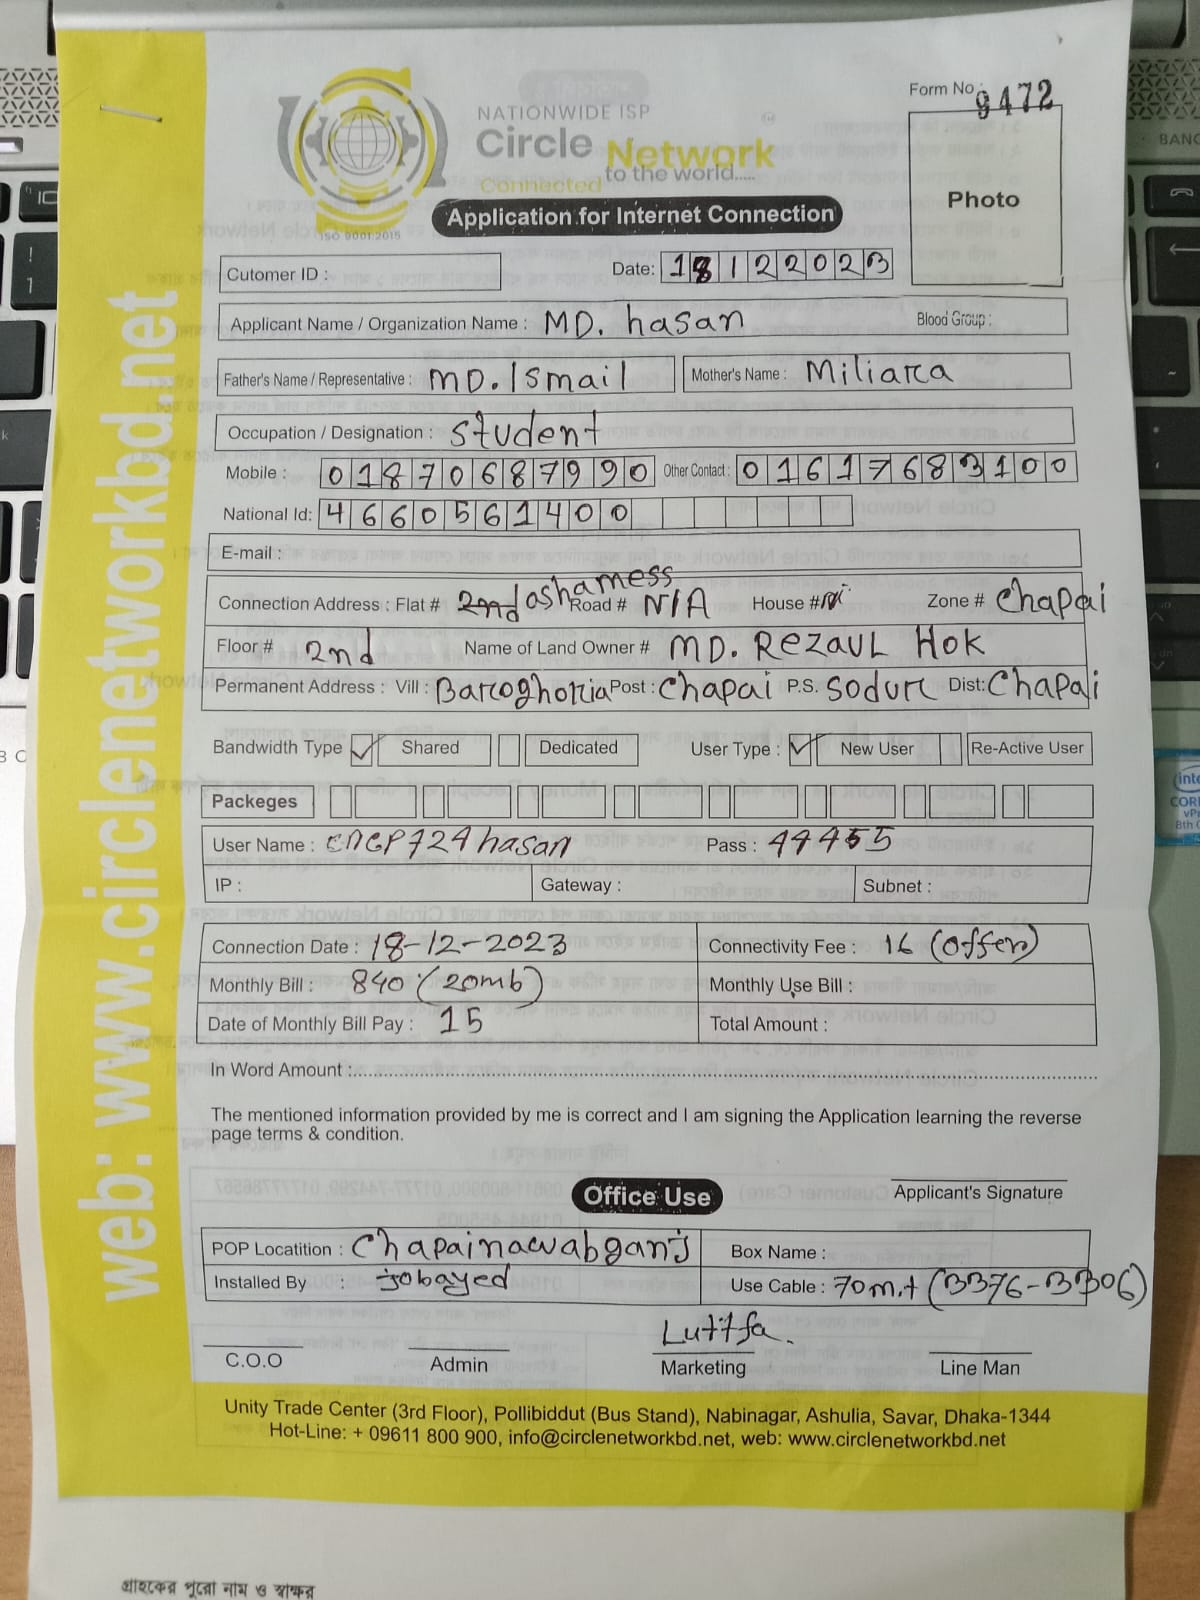 Form No. 9472
NATIONWIDE ISP
Circle Network
Connected to the world.....
ISO 9001:2015
Application for Internet Connection
Photo
Cutomer ID : Date: 18122023
Applicant Name / Organization Name : MD. hasan Blood Group :
Father's Name / Representative : MD. Ismail Mother's Name : Miliara
Occupation / Designation : Student
Mobile : 01870687990 Other Contact : 01617683100
National Id: 4660561400
E-mail :
Connection Address : Flat # Road # N/A House # Zone # Chapai
Floor # 2nd Name of Land Owner # MD. Rezaul Hok
Permanent Address : Vill : Baroghoria Post : Chapai P.S. Sodur Dist: Chapai
Bandwidth Type Shared Dedicated User Type : New User Re-Active User
Packeges
User Name : Pass : 44455
IP : Gateway : Subnet :
Connection Date : 18-12-2023 Connectivity Fee : (Offer)
Monthly Bill : 840 (20mb) Monthly Use Bill :
Date of Monthly Bill Pay : 15 Total Amount :
In Word Amount :
The mentioned information provided by me is correct and I am signing the Application learning the reverse
page terms & condition.
Applicant's Signature
Office Use
POP Locatition : Chapainawabganj Box Name :
Installed By : jobayed Use Cable : 70m.t (3376-3306)
Luttfa.
C.O.O Admin Marketing Line Man
Unity Trade Center (3rd Floor), Pollibiddut (Bus Stand), Nabinagar, Ashulia, Savar, Dhaka-1344
Hot-Line: + 09611 800 900, info@circlenetworkbd.net, web: www.circlenetworkbd.net
web: www.circlenetworkbd.net
গ্রাহকের পুরো নাম ও স্বাক্ষর